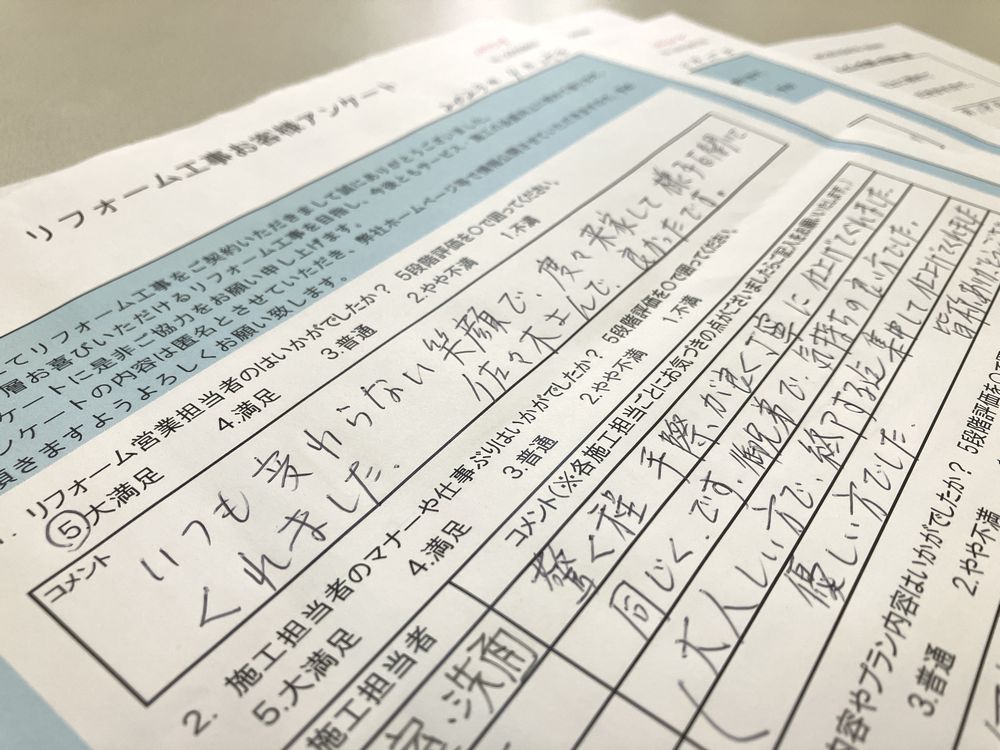 リフォーム工事お客様アンケート
てリフォーム工事をご契約いただきまして誠にありがとうございました。
層お喜びいただけるリフォーム工事を目指し、今後ともサービス
ケートに是非ご協力をお願い申し上げます。
ンケートの内容は匿名とさせていただき、弊社ホームページ等で
頂きますようよろしくお願い致します。
リフォーム営業担当者のはいかがでしたか? 5段階評価を○で囲ってください。
⑤大満足 4.満足 3.普通 2.やや不満 1.不満
コメント
いつも変わらない笑顔で、度々来家して様子を聞いて
くれました。佐々木さんで、良かったです。
2. 施工担当者のマナーや仕事ぶりはいかがでしたか? 5段階評価を○で囲ってください。
5.大満足 4.満足 3.普通 2.やや不満 1.不満
施工担当者 コメント(※各施工担当ごとにお気づきの点がございましたらご記入をお願いいたします。)
驚く程手際が良く丁寧に仕上げてくれました。
洗面 同じく.です.御兄弟で、気持ちの良い方でした。
大人しい方で、終了する迄集中して仕上げてくれました
優しい方でした.
内容やプラン内容はいかがでしたか? 5段階評価を○で
3.普通 2.やや不満